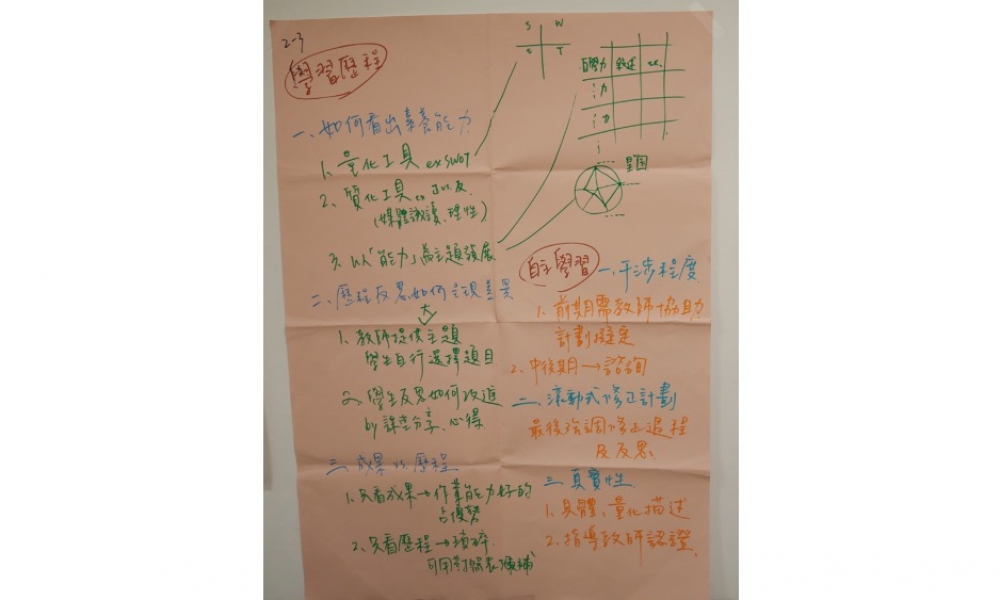 2-3
學習歷程
一、如何看出素養能力
1. 量化工具 ex SWOT
2、質化工具 ex
(媒體識讀、理性)
3. 以「能力」為主題發展
二、歷程反思如何呈現差異
大
1. 教師提供主題
學生自行選擇題目
2、學生反思如何改進
by 課堂分享、心得
三、成果 vs. 歷程
1. 只看成果→作業能力好的
占優勢
2. 只看歷程→瑣碎
可用
S W
T
敘述
力
力
星圖
自主學習
一、干涉程度
1. 前期需教師協助
計劃擬定
2. 中後期→諮詢
二、滾動式修正計劃
最後強調修正過程
及反思
三、真實性
1. 具體、量化描述
2. 指導教師認證